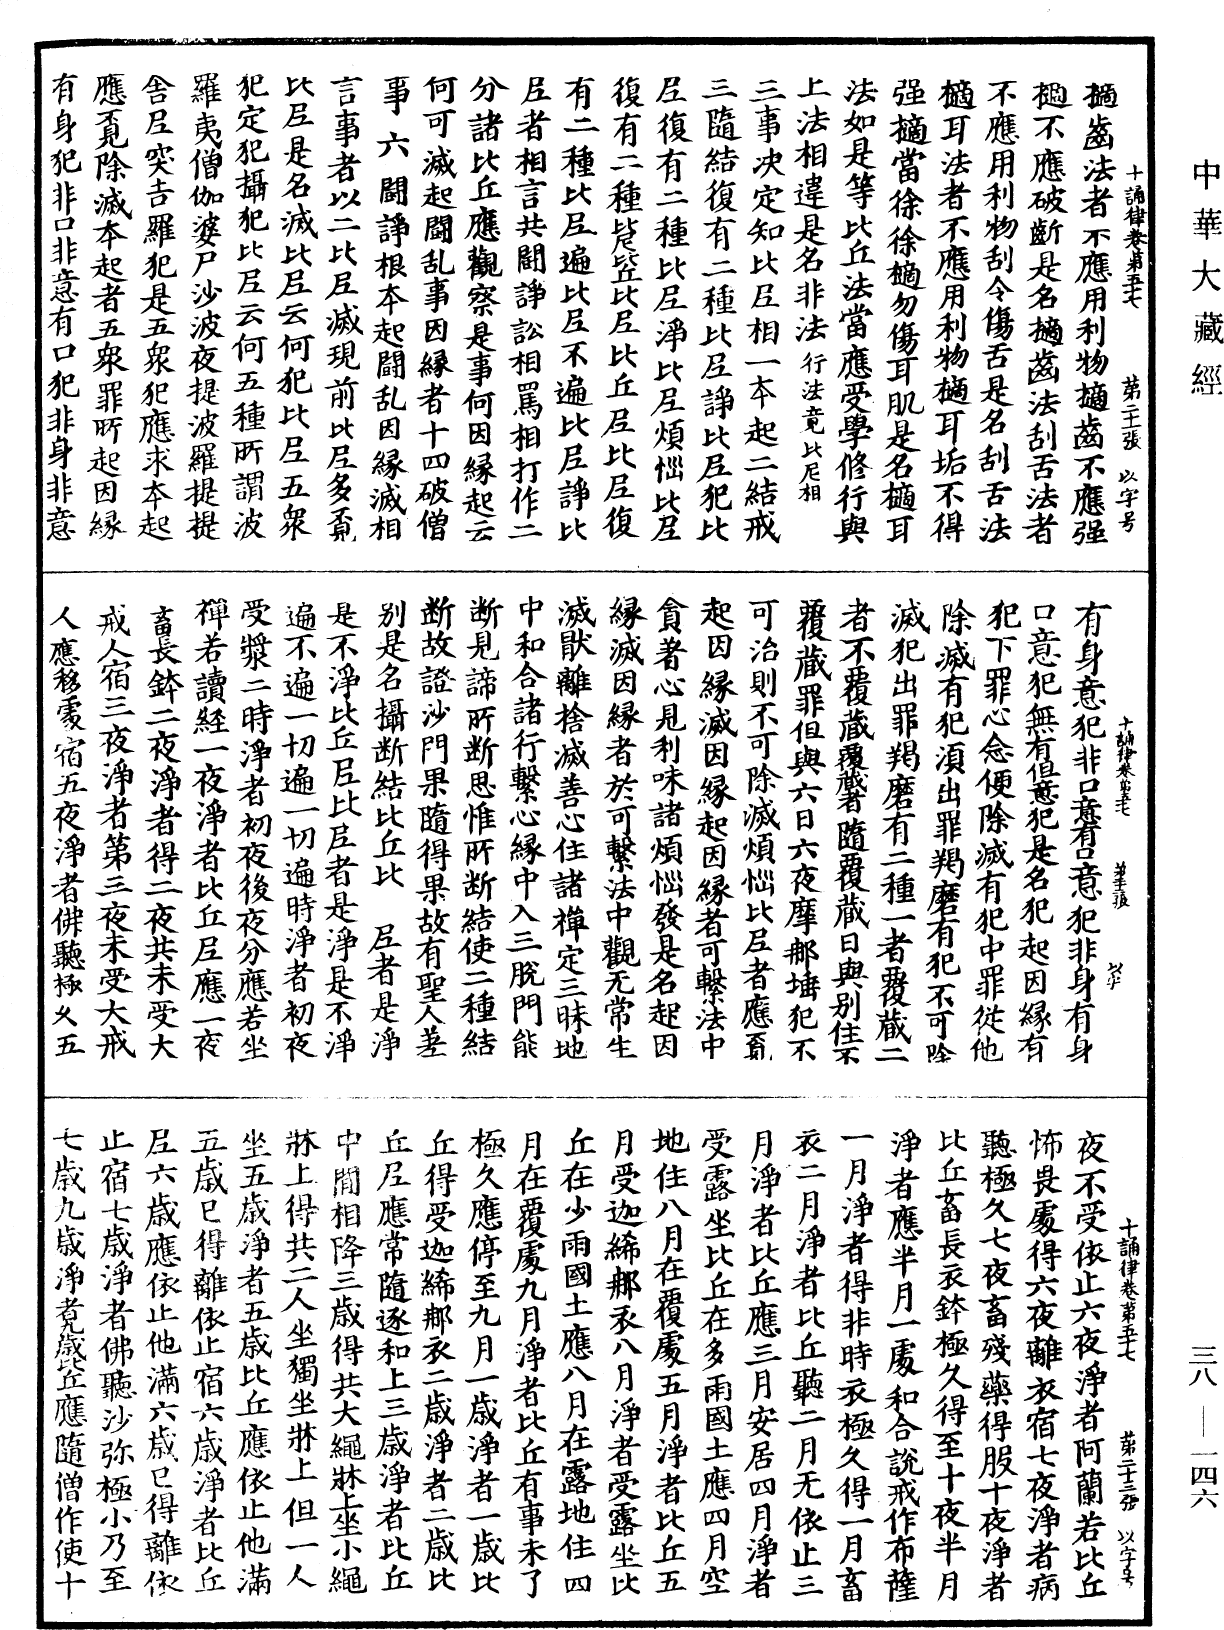 中華大藏經
十誦律卷第五十七　第二十一張　以字号
擿齒法者不應用利物擿齒不應强
擿不應破齗是名擿齒法刮舌法者
不應用利物刮令傷舌是名刮舌法
擿耳法者不應用利物擿耳垢不得
强擿當徐徐擿勿傷耳肌是名擿耳
法如是等比丘法當應受學修行與
上法相違是名非法行法竟比尼相
三事决定知比尼相一本起二結戒
三隨結復有二種比尼諍比尼犯比
尼復有二種比尼淨比尼煩惱比尼
復有二種比丘比尼比丘尼比尼復
有二種比尼遍比尼不遍比尼諍比
尼者相言共鬪諍訟相罵相打作二
分諸比丘應觀察是事何因緣起云
何可滅起鬪乱事因緣者十四破僧
事六鬪諍根本起鬪乱因緣滅相
言事者以二比尼滅現前比尼多覓
比尼是名滅比尼云何犯比尼五衆
犯定犯攝犯比尼云何五種所謂波
羅夷僧伽婆尸沙波夜提波羅提提
舍尼突吉羅犯是五衆犯應求本起
應覓除滅本起者五衆罪所起因緣
有身犯非口非意有口犯非身非意
十誦律卷第五十七
有身意犯非口意有口意犯非身有身
口意犯無有但意犯是名犯起因緣有
犯下罪心念便除滅有犯中罪從他
除滅有犯須出罪羯磨有犯不可除
滅犯出罪羯磨有二種一者覆藏二
者不覆藏覆藏者隨覆藏日與別住不
覆藏罪但與六日六夜摩那埵犯不
可治則不可除滅煩惱比尼者應覓
起因緣滅因緣起因緣者可繫法中
貪著心見利味諸煩惱發是名起因
緣滅因緣者於可繫法中觀无常生
滅猒離捨滅善心住諸禪定三昧地
中和合諸行繫心緣中入三脫門能
断見諦所断思惟所断結使二種結
断故證沙門果隨得果故有聖人差
别是名攝断結比丘比尼者是淨
是不淨比丘尼比尼者是淨是不淨
遍不遍一切遍一切遍時淨者初夜
受漿二時淨者初夜後夜分應若坐
禪若讀經一夜淨者比丘尼應一夜
畜長鉢二夜淨者得二夜共未受大
戒人宿三夜淨者第三夜未受大戒
人應移處宿五夜淨者佛聽極久五
十誦律卷第五十七　第二十三張　以字号
夜不受依止六夜淨者阿蘭若比丘
怖畏處得六夜離衣宿七夜淨者病
聽極久七夜畜殘藥得服十夜淨者
比丘畜長衣鉢極久得至十夜半月
淨者應半月一處和合說戒作布薩
一月淨者得非時衣極久得一月畜
衣二月淨者比丘聽二月无依止三
月淨者比丘應三月安居四月淨者
受露坐比丘在多雨國土應四月空
地住八月在覆處五月淨者比丘五
月受迦絺那衣八月淨者受露坐比
丘在少雨國土應八月在露地住四
月在覆處九月淨者比丘有事未了
極久應停至九月一歲淨者一歲比
丘得受迦絺那衣二歲淨者二歲比
丘尼應常隨逐和上三歲淨者比丘
中閒相降三歲得共大繩牀上坐小繩
牀上得共二人坐獨坐牀上但一人
坐五歲淨者五歲比丘應依止他滿
五歲已得離依止宿六歲淨者比丘
尼六歲應依止他滿六歲已得離依
止宿七歲淨者佛聽沙弥極小乃至
七歲九歲淨者九歲比丘應隨僧作使十
三八—一四六